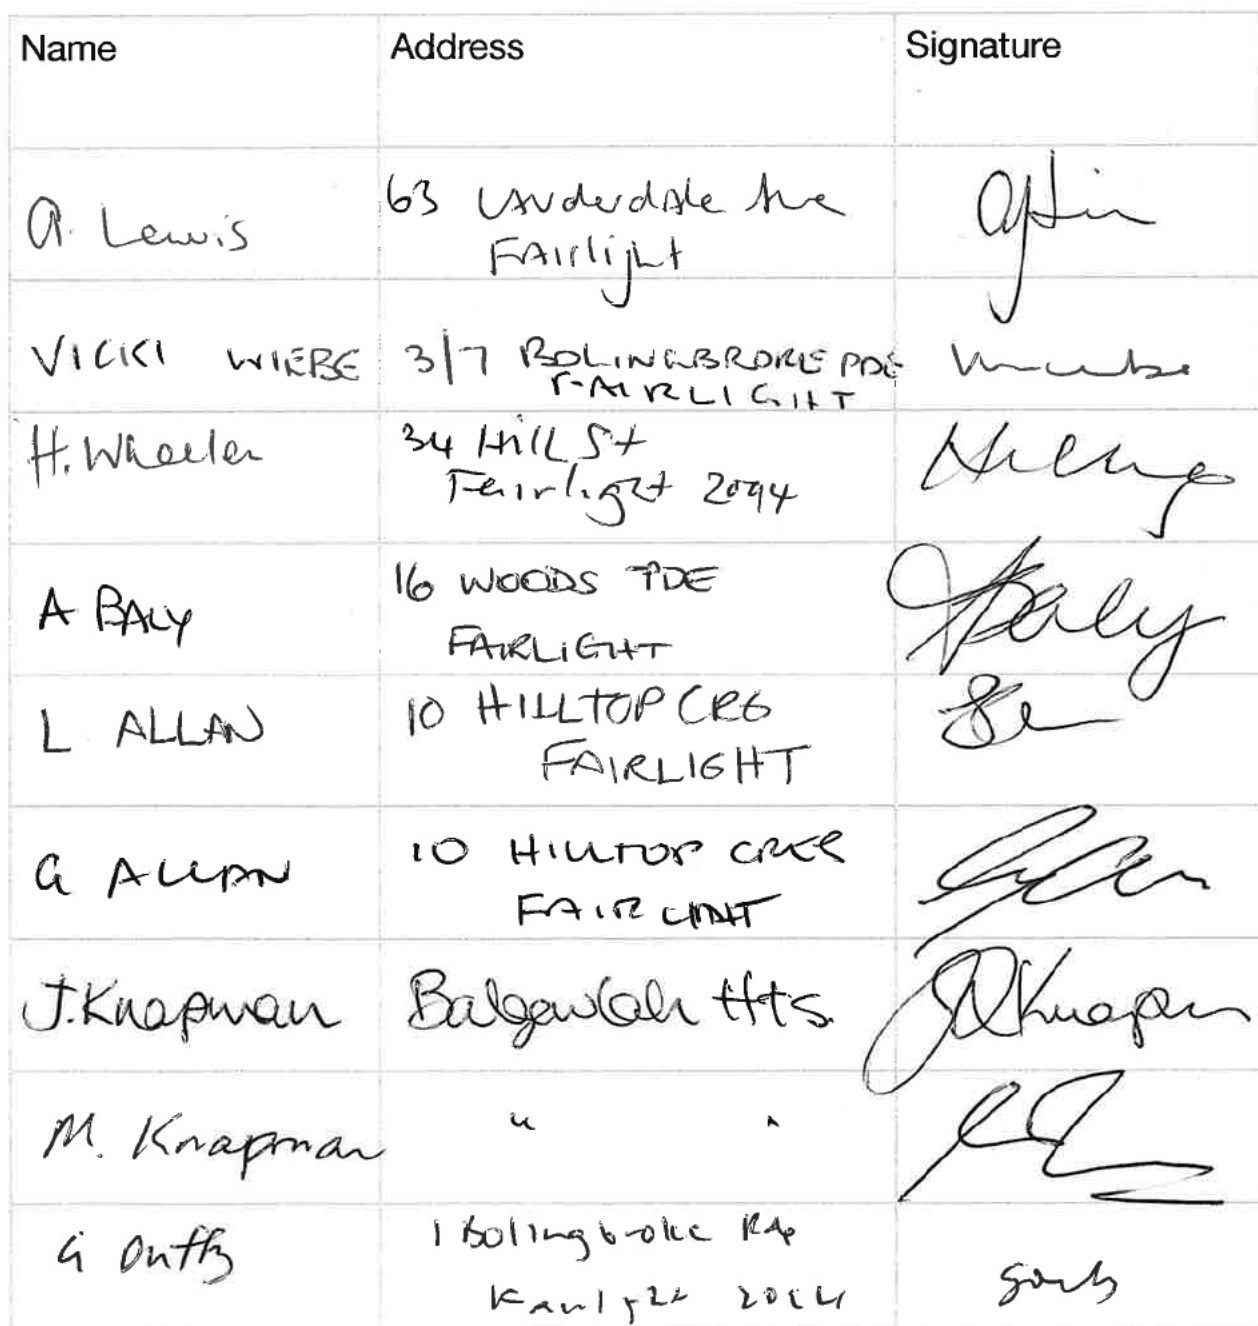 Name Address Signature
A. Lewis 63 Lauderdale Ave
Fairlight
VICKI WIEBE 3/7 BOLINGBROKE PDE
FAIRLIGHT
H. Wheeler 34 Hill St
Fairlight 2094
A BALY 16 WOODS PDE Baly
FAIRLIGHT
L ALLAN 10 HILLTOP CRES
FAIRLIGHT
G ALLAN 10 HILLTOP CRES
FAIRLIGHT
J. Knapman Balgowlah Hts. J Knapman
M. Knapman " "
G Duffy 1 Bolingbroke
Fairlight